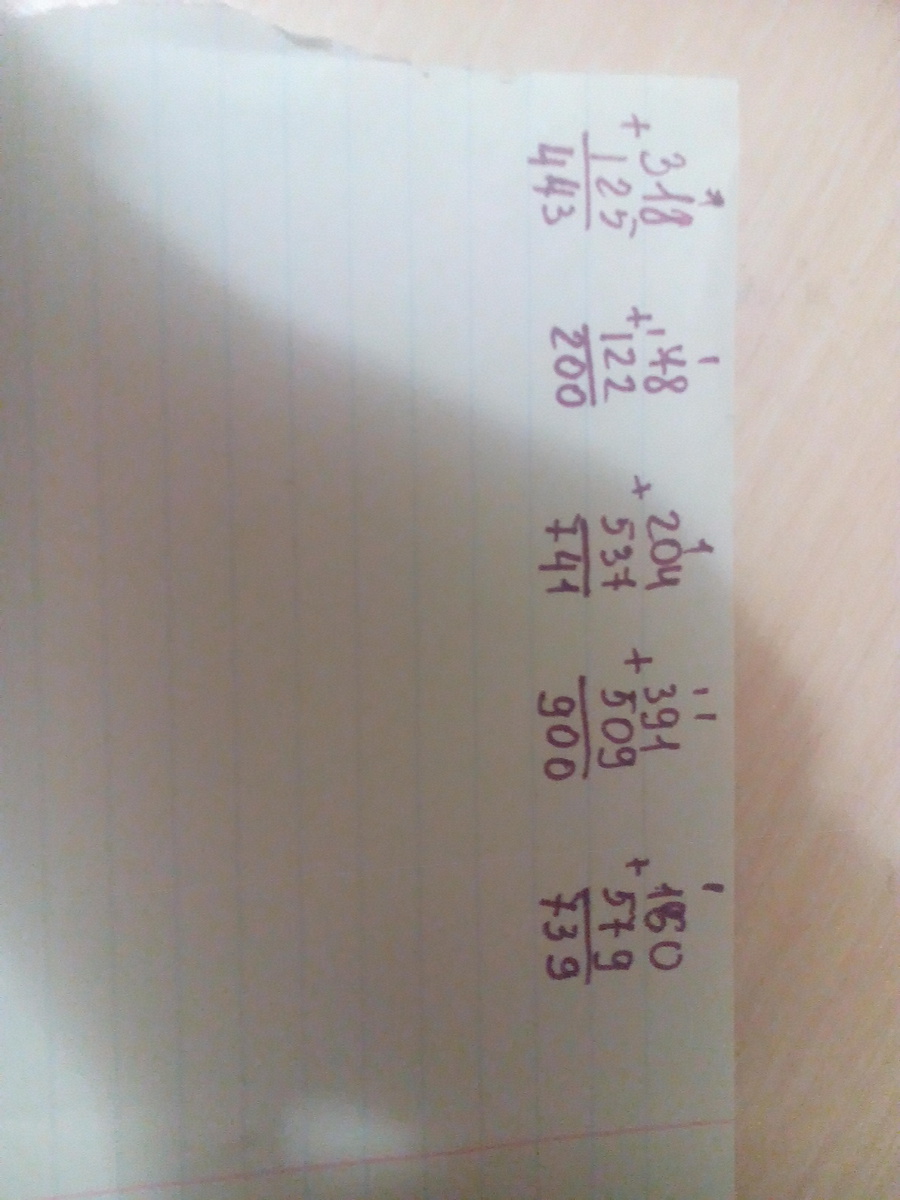 1 1 1 1 1 1 1
+ 318 + 78 + 204 + 391 + 160
125 122 537 509 579
443 200 741 900 739